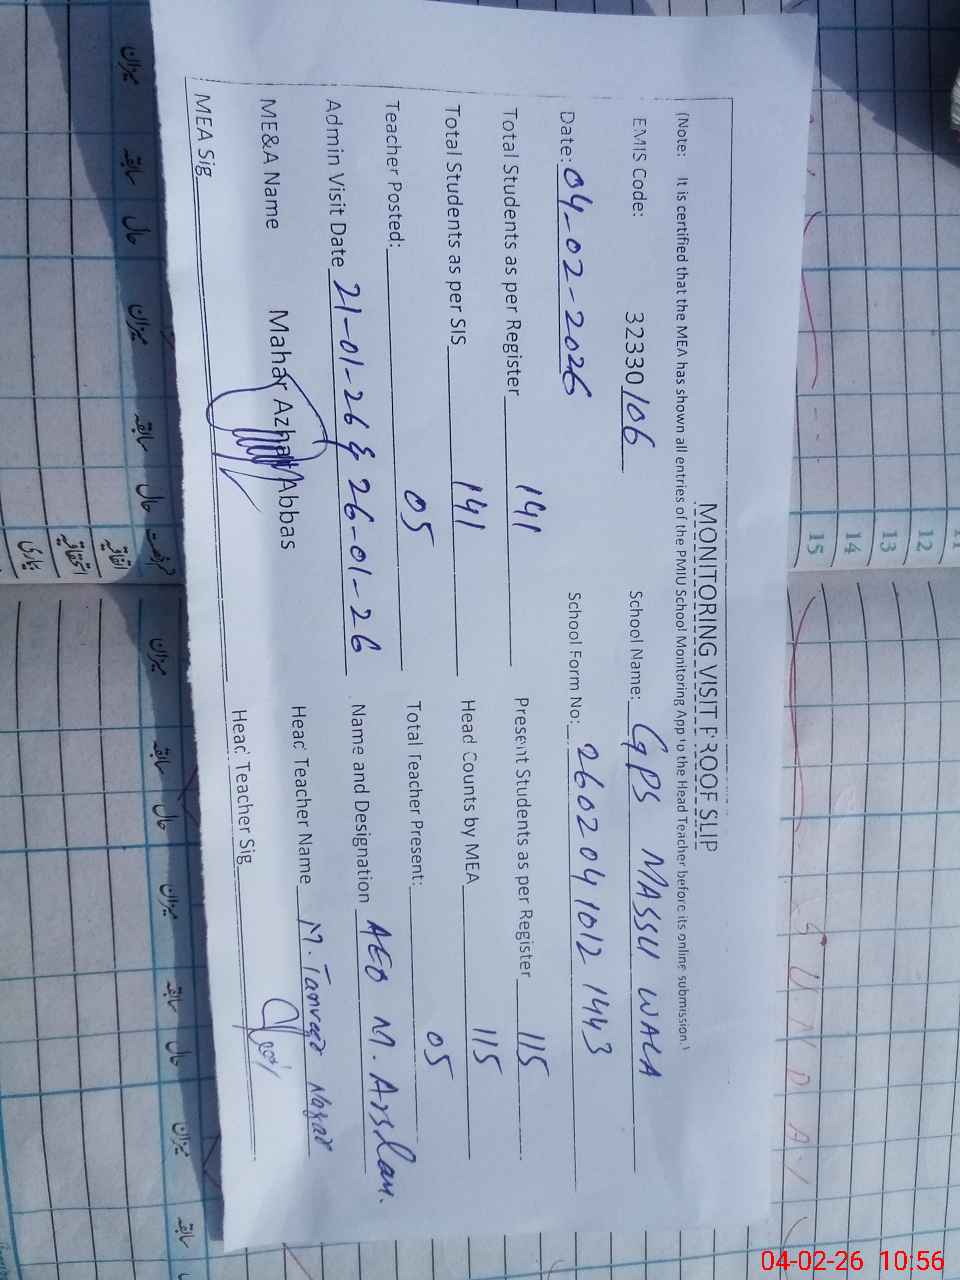 MONITORING VISIT PROOF SLIP
(Note: It is certified that the MEA has shown all entries of the PMIU School Monitoring App to the Head Teacher before its online submission.)
EMIS Code: 32330106 School Name: GPS MASSU WALA
Date: 04-02-2026 School Form No: 2602041012 1443
Total Students as per Register 141 Present Students as per Register 115
Total Students as per SIS 141 Head Counts by MEA 115
Teacher Posted: 05 Total Teacher Present: 05
Admin Visit Date 21-01-26 & 26-01-26 Name and Designation AEO M. Arslan.
ME&A Name Mahar Azhar Abbas Head Teacher Name M. Tanveer
MEA Sig Head Teacher Sig
11
12
13
14
15
میزان سابقہ حال میزان سابقہ حال
میزان سابقہ حال میزان سابقہ حال میزان سابقہ
S U N D A Y
04-02-26 10:56